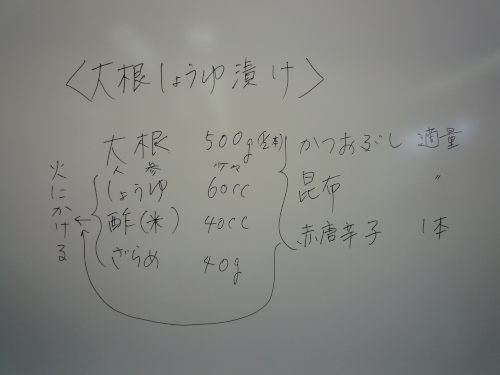 〈大根しょうゆ漬け〉
大根 500g
人参 少々
しょうゆ 60cc
酢(米) 40cc
ざらめ 40g
火にかける
かつおぶし 適量
昆布 〃
赤唐辛子 1本